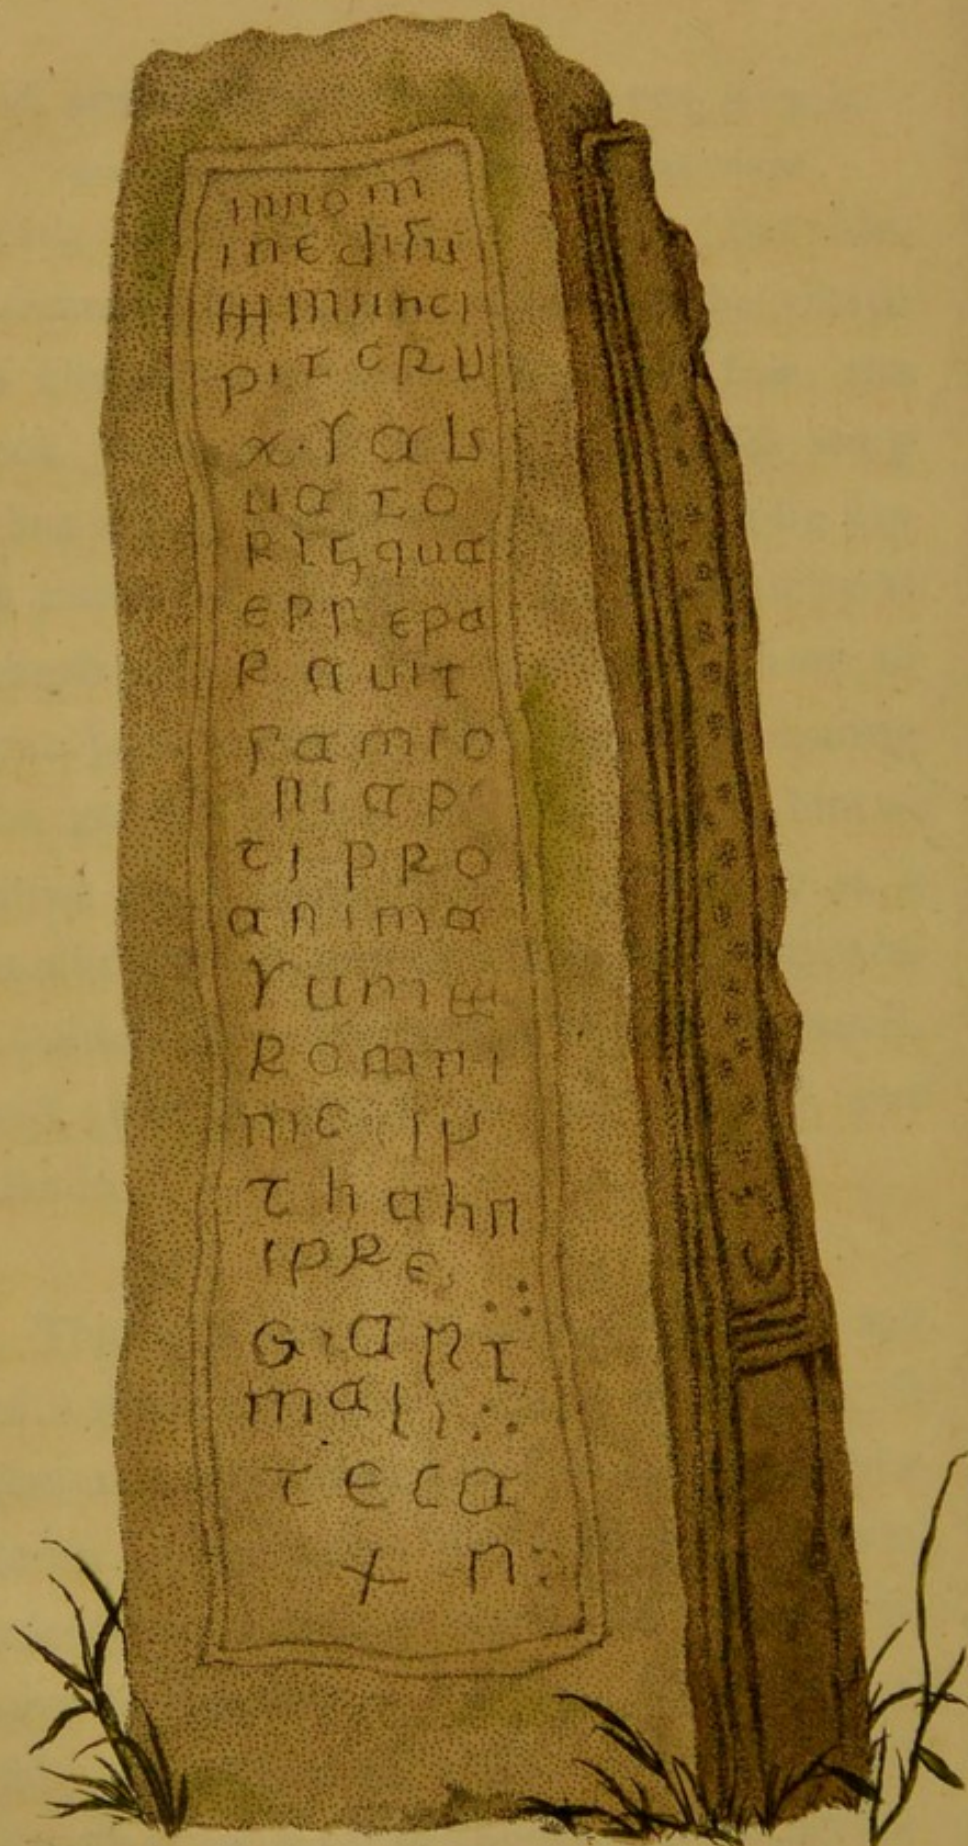 innom
inedisu
mmiinci
pitcru
x·sal
uato
risqua
epr epa
rauit
samso
niap
ti pro
anima
ro ani
me iu
thahe
ipre
art
mali :·
teca
+ n :